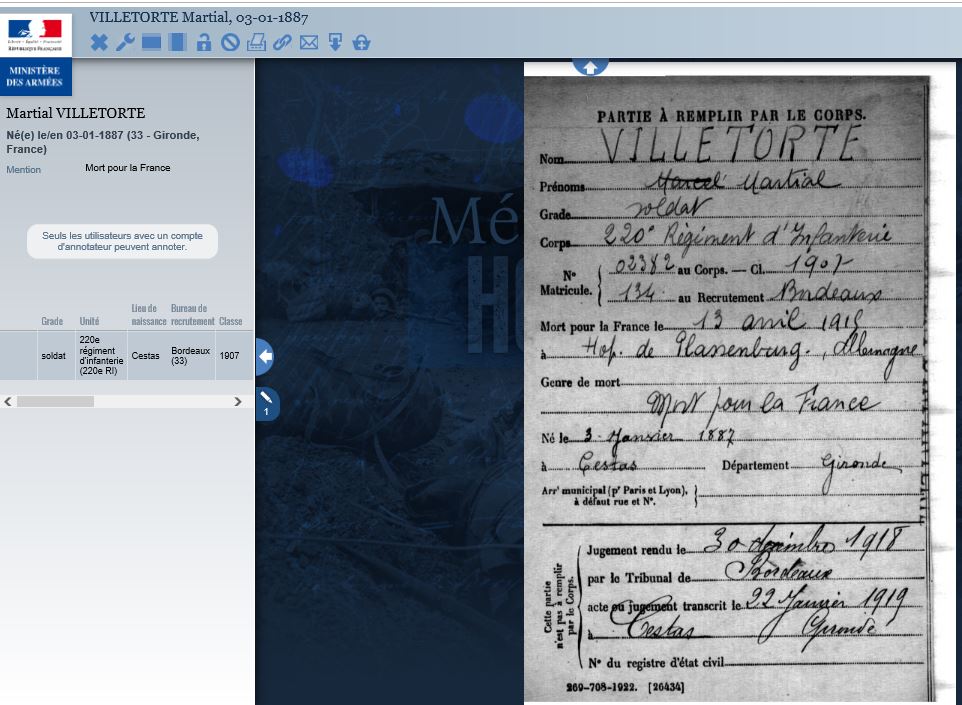 VILLETORTE Martial, 03-01-1887
Liberté • Égalité • Fraternité
RÉPUBLIQUE FRANÇAISE
MINISTÈRE
DES ARMÉES
Martial VILLETORTE
Né(e) le/en 03-01-1887 (33 - Gironde,
France)
Mention Mort pour la France
Seuls les utilisateurs avec un compte
d'annotateur peuvent annoter.
Grade Unité Lieu de naissance Bureau de recrutement Classe
soldat 220e régiment d'infanterie (220e RI) Cestas Bordeaux (33) 1907
1
Mé
H
PARTIE À REMPLIR PAR LE CORPS.
Nom VILLETORTE
Prénoms Marcel Martial
Grade soldat
Corps 220e Régiment d'Infanterie
N° Matricule. { 02382 au Corps. — Cl. 1907
134 au Recrutement Bordeaux
Mort pour la France le 13 avril 1915
à Hop. de Plassenburg, Allemagne
Genre de mort
Mort pour la France
Né le 3 Janvier 1887
à Cestas Département Gironde
Arrt municipal (pr Paris et Lyon),
à défaut rue et N°.
Cette partie
n'est pas à remplir
par le Corps.
Jugement rendu le 30 décembre 1918
par le Tribunal de Bordeaux
acte ou jugement transcrit le 22 Janvier 1919
à Cestas Gironde
N° du registre d'état civil
269-708-1922. [26434]